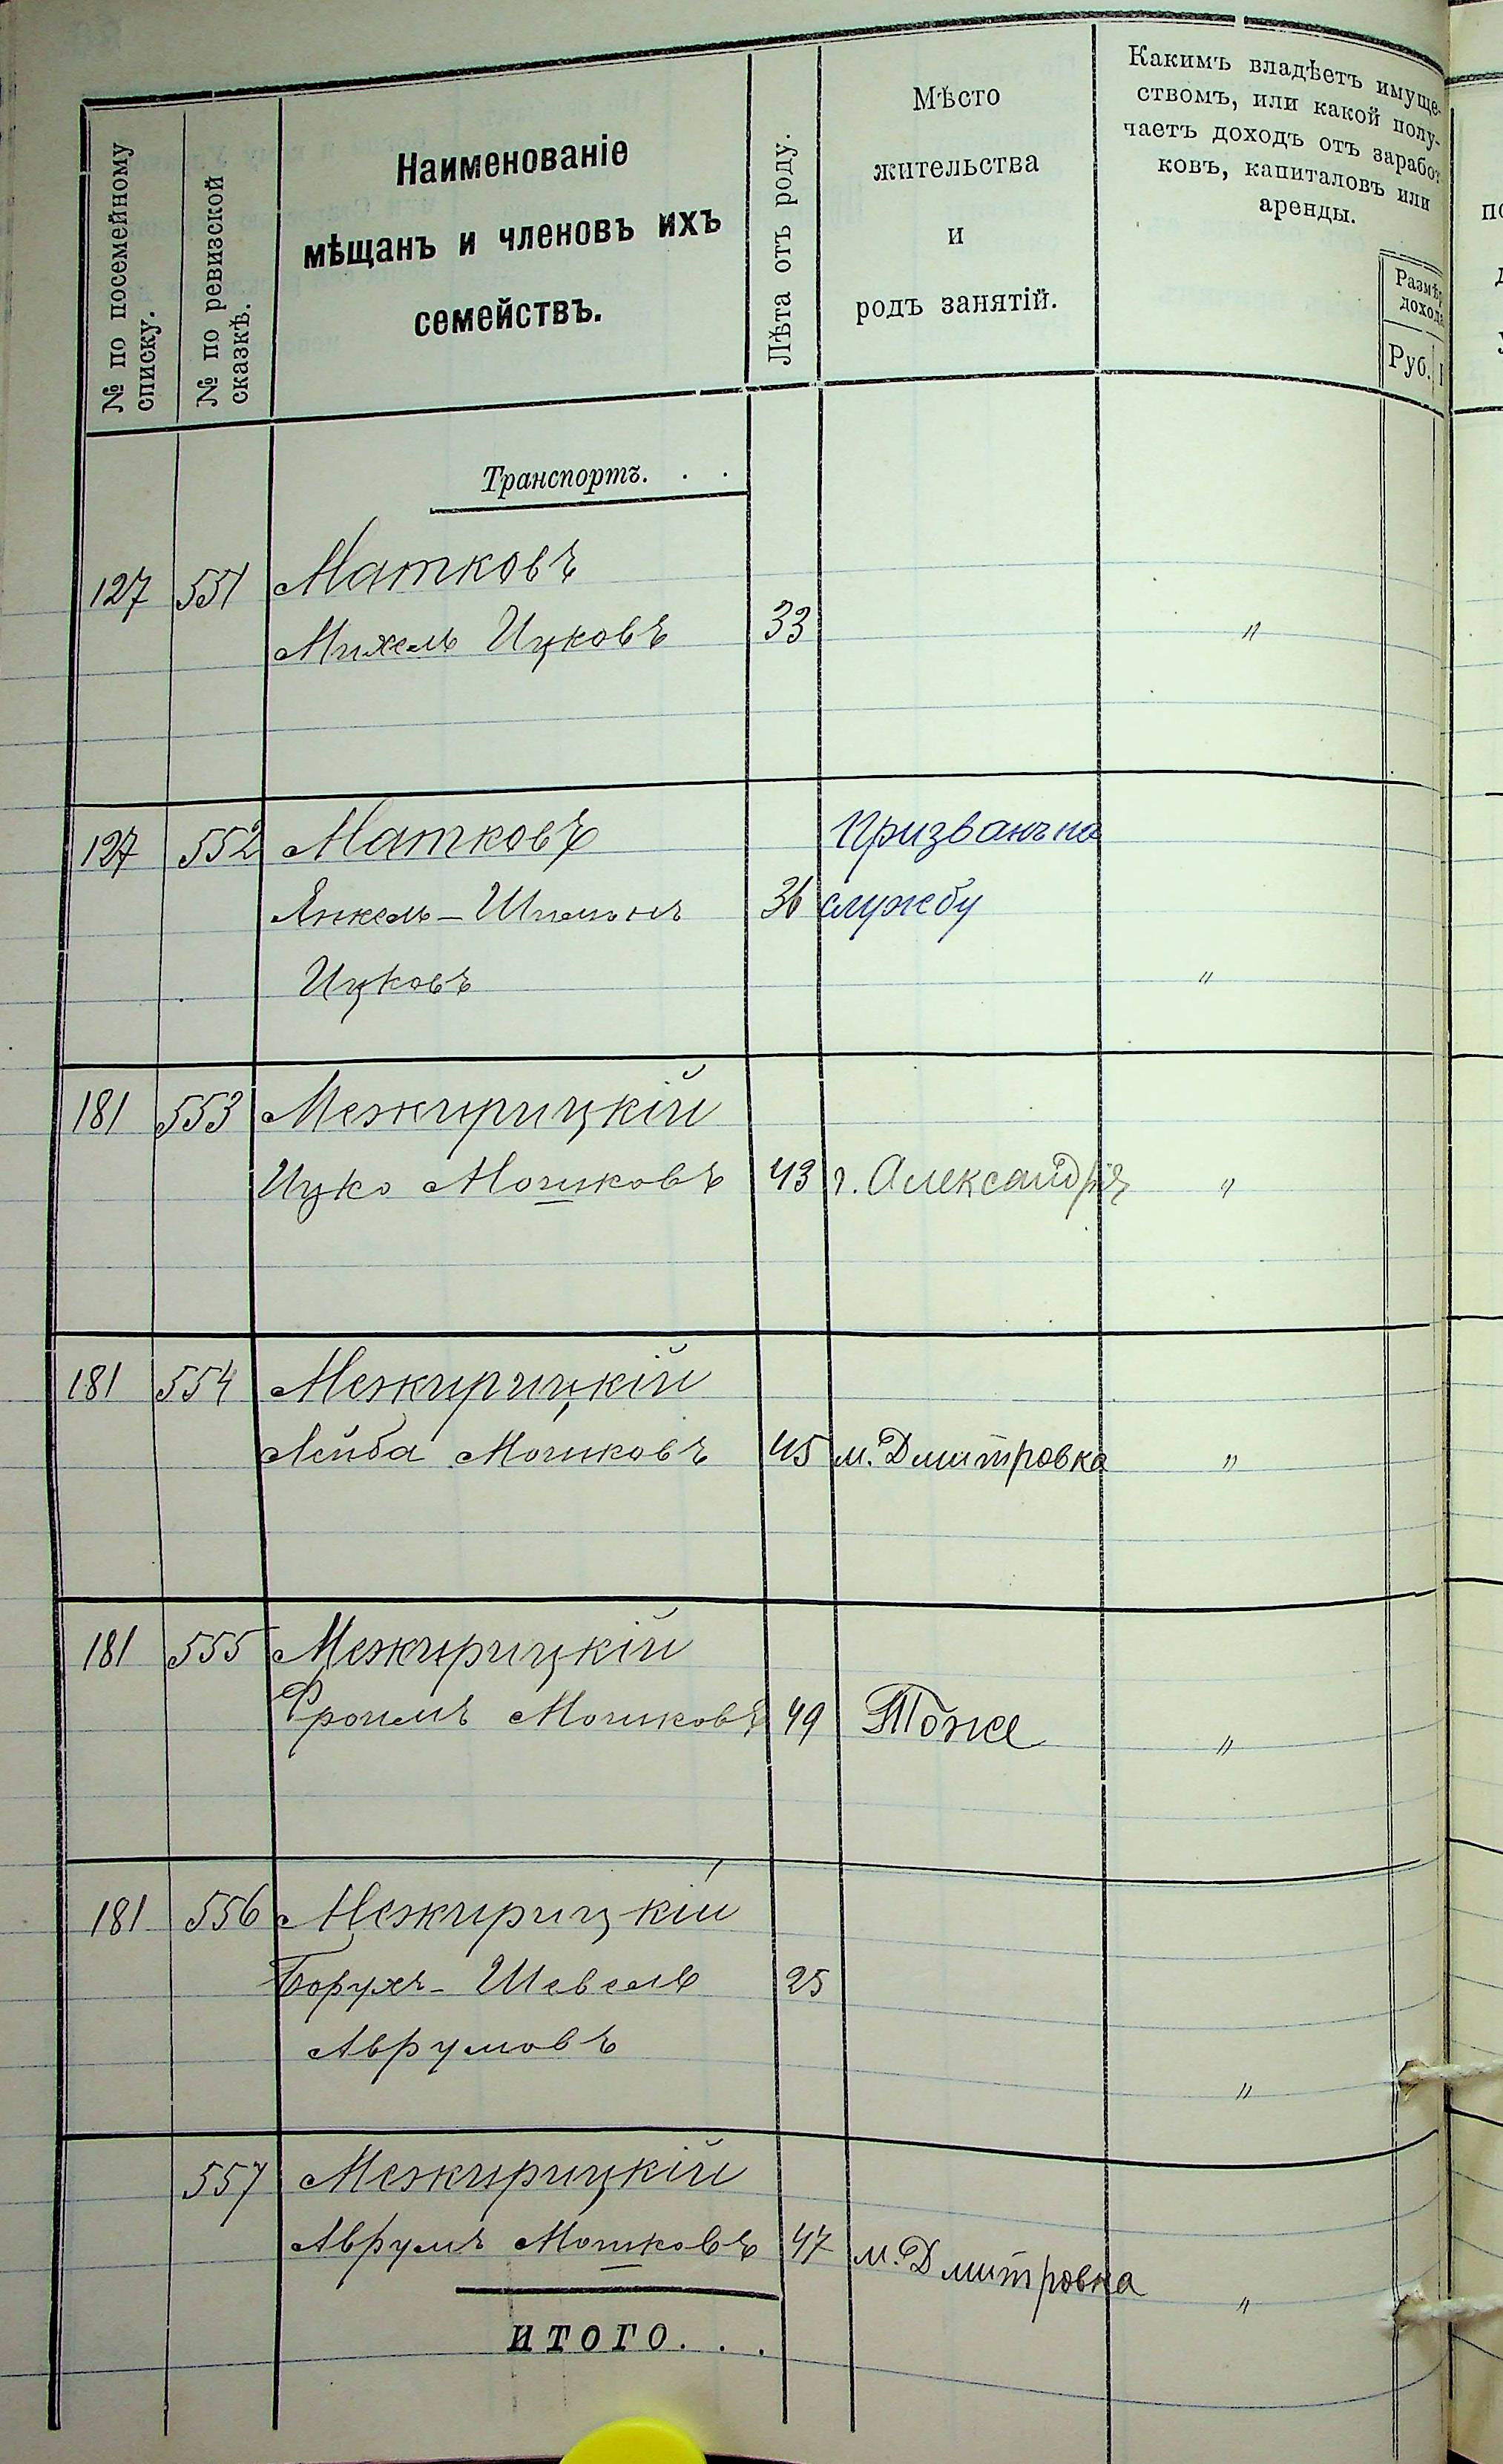 № по посемейному
списку.
№ по ревизской
сказкѣ.
Наименованіе
мѣщанъ и членовъ ихъ
семействъ.
Лѣта отъ роду.
Мѣсто
жительства
и
родъ занятій.
Какимъ владѣетъ имуще-
ствомъ, или какой полу-
чаетъ доходъ отъ зарабо
ковъ, капиталовъ или
аренды.
Размѣр
дохода
Руб.
Транспортъ. . .
127 551 Матковъ
Михель Ицковъ 33 "
127 552 Матковъ Призванъ на
Янкель-Шлемънъ 36 службу
Ицковъ "
181 553 Межирицкій
Ицко Мошковъ 43 г. Александрія "
181 554 Межирицкій
Лейба Мошковъ 45 м. Дмитровка "
181 555 Межирицкій
Фроимъ Мошковъ 49 Тоже "
181 556 Межирицкій
Борухъ-Шевель 25
Аврумовъ "
557 Межирицкій
Аврумъ Мошковъ 47 м. Дмитровка "
ИТОГО. . .